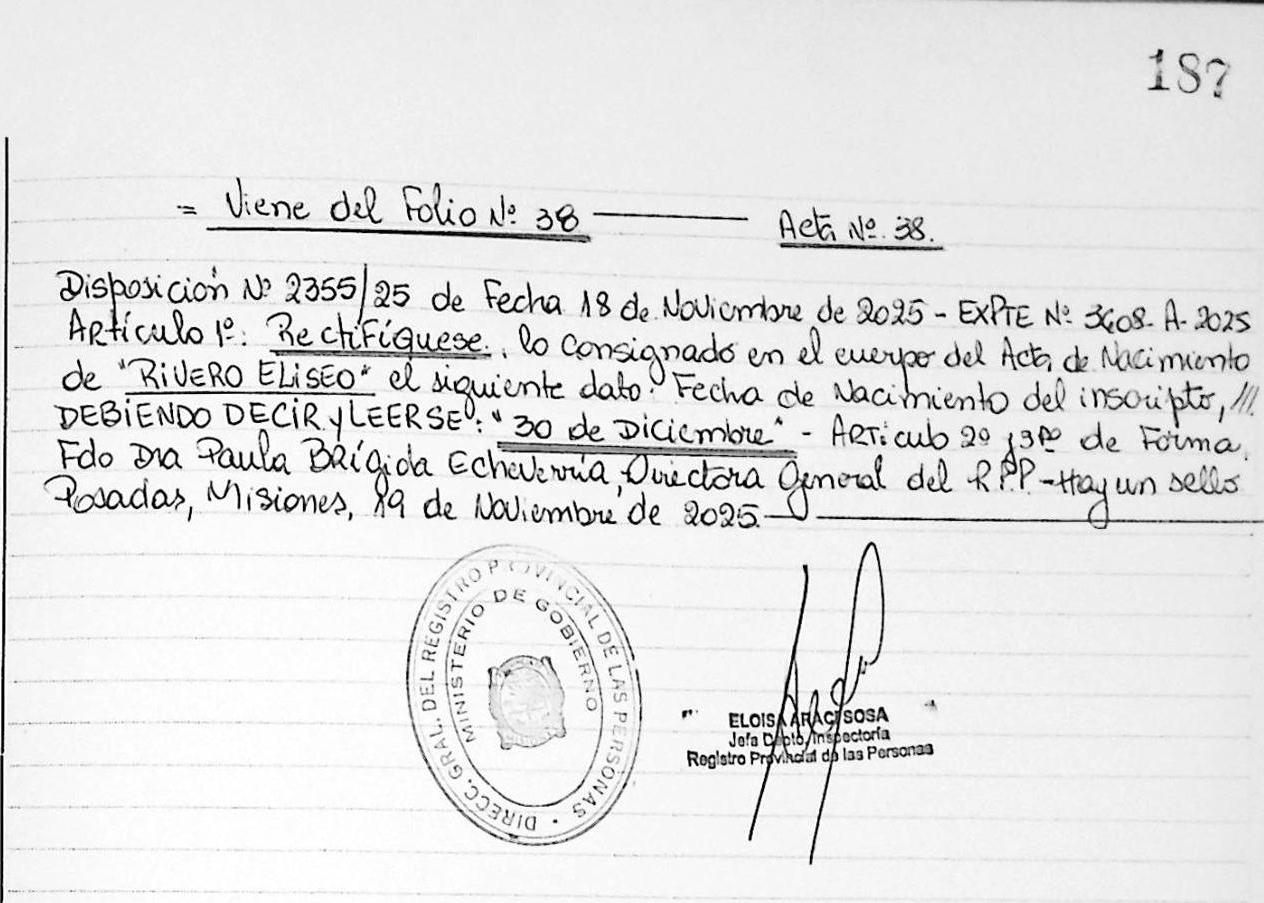 187
= Viene del Folio Nº 38 ——— Acta Nº 38.
Disposición Nº 2355/25 de Fecha 18 de Noviembre de 2025 - EXPTE Nº 3608- A- 2025
Artículo 1º: Rectifíquese, lo consignado en el cuerpo del Acta de Nacimiento
de "RIVERO ELISEO" el siguiente dato: Fecha de Nacimiento del inscripto, ///.
DEBIENDO DECIR y LEERSE: "30 de Diciembre" - Artículo 2º y 3º de Forma.
Fdo Dra Paula Brígida Echeverría, Directora General del R.P.P - Hay un sello
Posadas, Misiones, 19 de Noviembre de 2025.———
DIRECC. GRAL. DEL REGISTRO PROVINCIAL DE LAS PERSONAS
MINISTERIO DE GOBIERNO
ELOISA ARACI SOSA
Jefa Depto. Inspectoría
Registro Provincial de las Personas